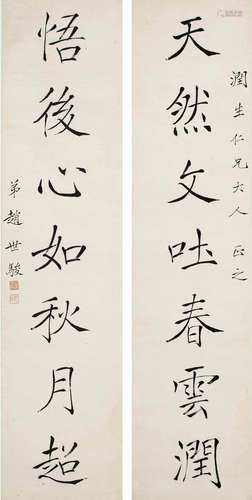 潤生仁兄大人正之
天然文吐春雲潤
悟後心如秋月超
弟趙世駿